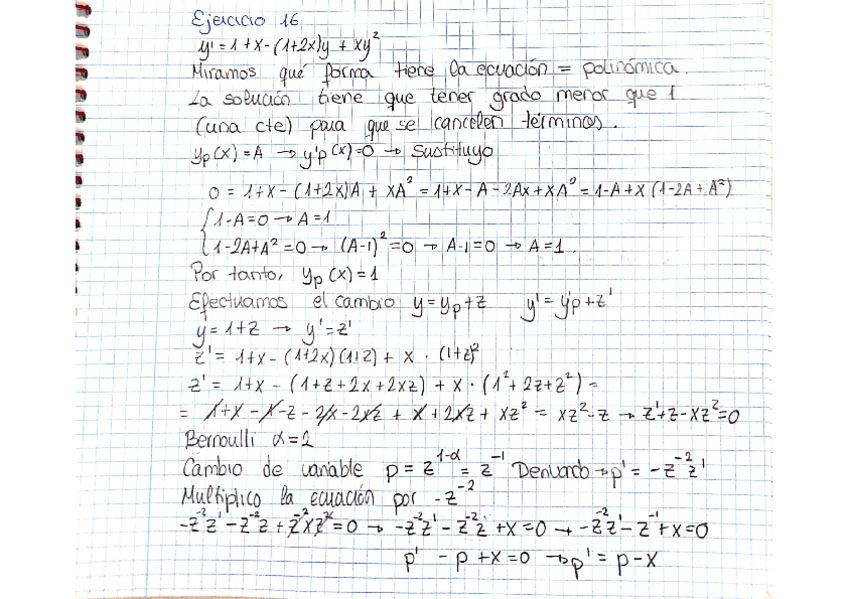 Ejercicio 16
y' = 1 + x - (1+2x)y + xy²
Miramos qué forma tiene la ecuación = polinómica.
La solución tiene que tener grado menor que 1
(una cte) para que se cancelen términos.
yp(x) = A → y'p(x) = 0 → Sustituyo
0 = 1+x - (1+2x)A + xA² = 1+x - A - 2Ax + xA² = 1-A+x (1-2A+A²)
{ 1-A=0 → A=1
1-2A+A²=0 → (A-1)²=0 → A-1=0 → A=1.
Por tanto, yp(x)=1
Efectuamos el cambio y = yp+z y' = y'p+z'
y = 1+z → y' = z'
z' = 1+x - (1+2x)(1+z) + x · (1+z)²
z' = 1+x - (1+z+2x+2xz) + x · (1²+2z+z²) =
= 1+x - 1 - z - 2x - 2xz + x + 2xz + xz² = xz²-z → z'+z-xz²=0
Bernoulli α=2
Cambio de variable p = z^1-α = z^-1 Derivando → p' = -z^-2 z'
Multiplico la ecuación por -z^-2
-z^-2 z' - z^-2 z + z^-2 x z² = 0 → -z^-2 z' - z^-2 z + x = 0 → -z^-2 z' - z^-1 + x = 0
p' - p + x = 0 → p' = p - x